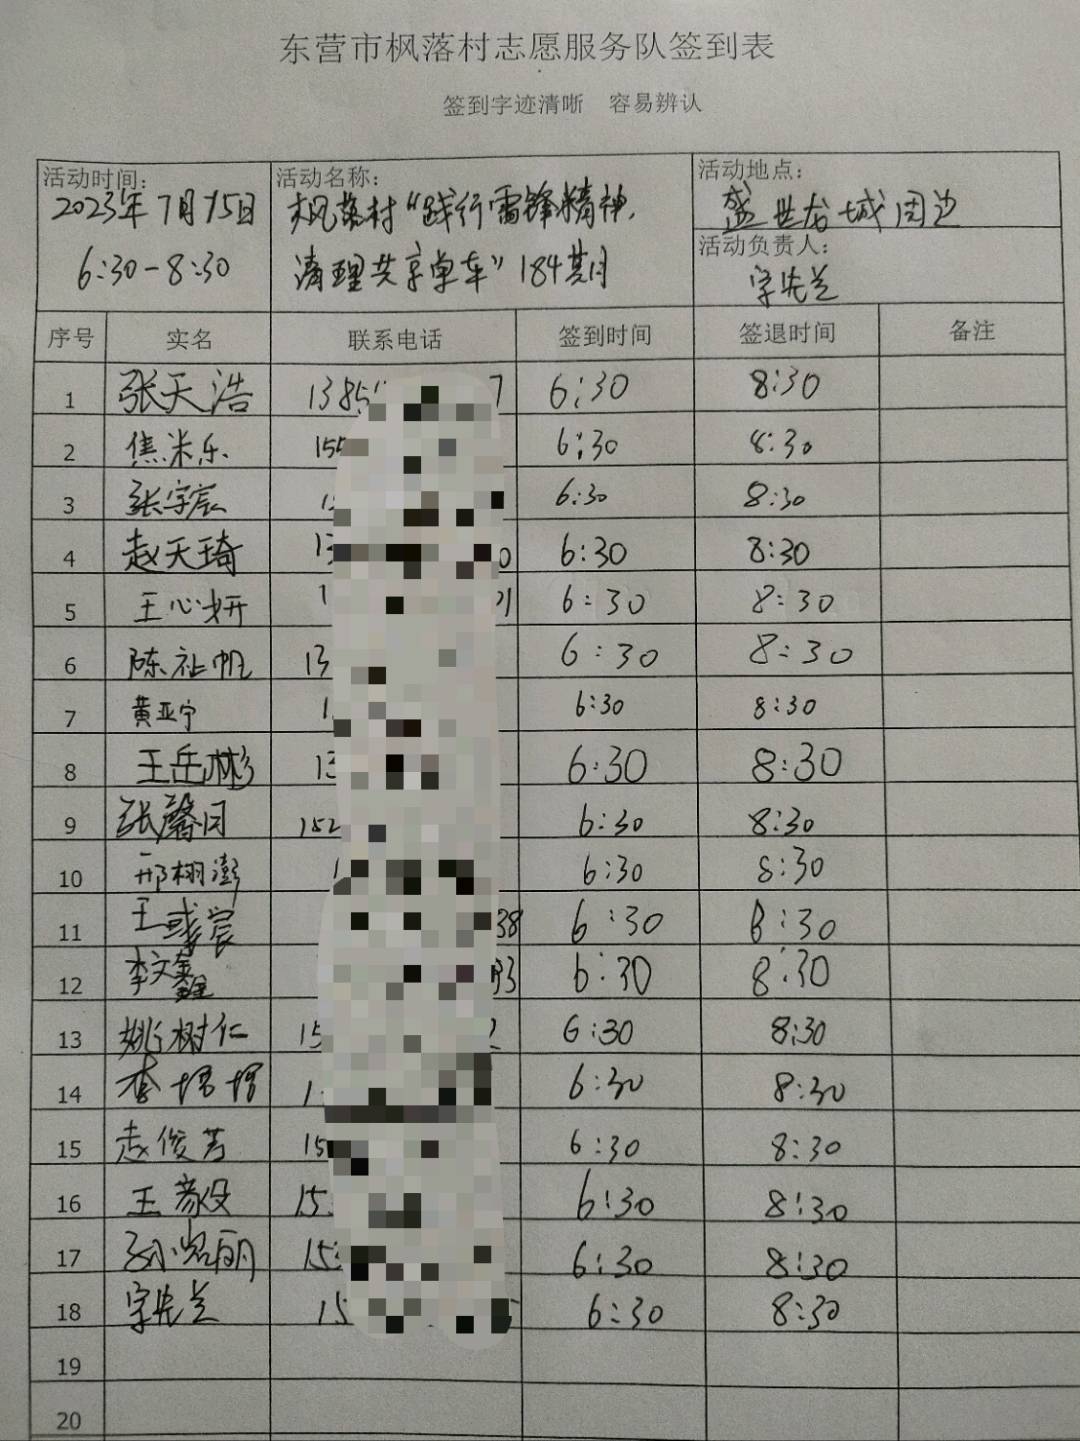 东营市枫落村志愿服务队签到表
签到字迹清晰 容易辨认
活动时间:
2023年7月15日
6:30-8:30
活动名称:
枫落村“践行雷锋精神,
清理共享单车”184期
活动地点:
盛世龙城周边
活动负责人:
字先兰
序号 实名 联系电话 签到时间 签退时间 备注
1 张天浩 1385 7 6:30 8:30
2 焦米乐 155 6:30 8:30
3 张宇宸 1 6:30 8:30
4 赵天琦 13 0 6:30 8:30
5 王心妍 1 91 6:30 8:30
6 陈祉帆 13 6:30 8:30
7 黄亚宁 1 6:30 8:30
8 王岳彬 13 6:30 8:30
9 张馨月 152 6:30 8:30
10 邢栩澎 1 6:30 8:30
11 王 38 6:30 8:30
12 李文鑫 93 6:30 8:30
13 姚树仁 15 2 6:30 8:30
14 李增增 1 6:30 8:30
15 赵俊芳 15 6:30 8:30
16 王彦俊 15 6:30 8:30
17 孙光丽 15 6:30 8:30
18 字先兰 15 6:30 8:30
19
20